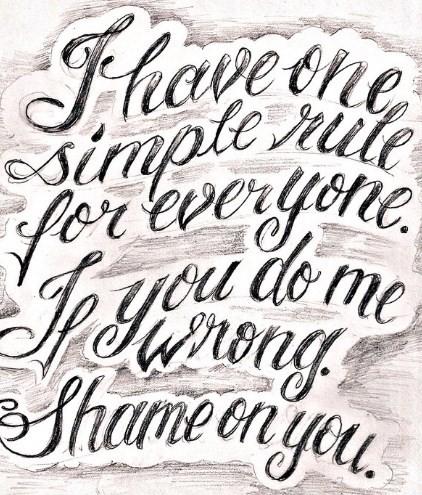 I have one
simple rule
for everyone.
If you do me
wrong.
Shame on you.